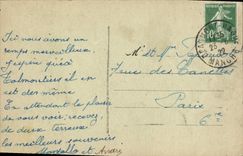 Ici nous avons un
temps merveilleux,
j'espère qu'à
Talmontiers il en
est de même
En attendant le plaisir
de vous voir, recevez,
de deux terreux
les meilleurs souvenirs
et André
Mr et Mme
rue des Canettes
Paris
6e